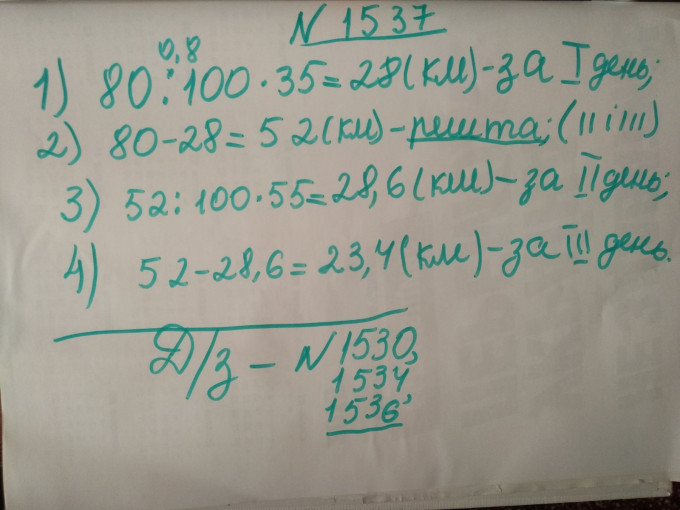 N 1537
0,8
1) 80 : 100 · 35 = 28 (км) - за I день;
2) 80 - 28 = 52 (км) - решта; (II і III)
3) 52 : 100 · 55 = 28,6 (км) - за II день;
4) 52 - 28,6 = 23,4 (км) - за III день.
Д/з - N 1530,
1534,
1536